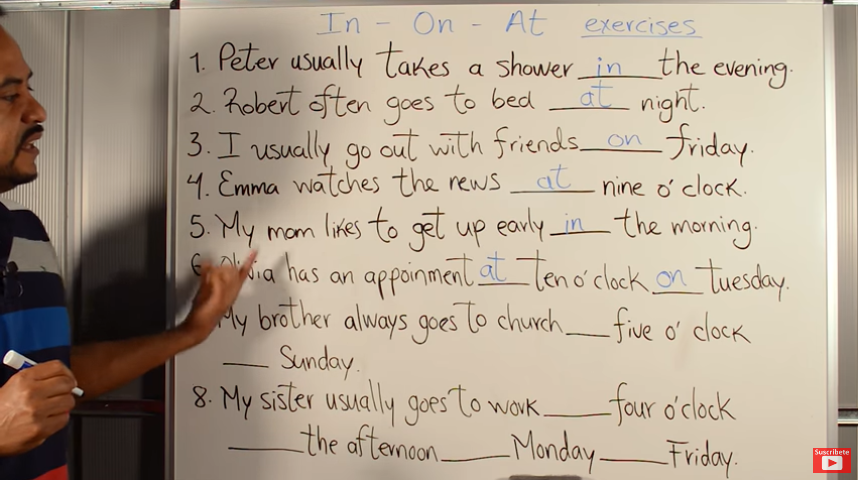 In - On - At exercises
1. Peter usually takes a shower in the evening.
2. Robert often goes to bed at night.
3. I usually go out with friends on friday.
4. Emma watches the news at nine o'clock.
5. My mom likes to get up early in the morning.
6. Olivia has an appoinment at ten o'clock on tuesday.
My brother always goes to church ___ five o'clock
___ Sunday.
8. My sister usually goes to work ___ four o'clock
___ the afternoon ___ Monday ___ Friday.
Suscríbete